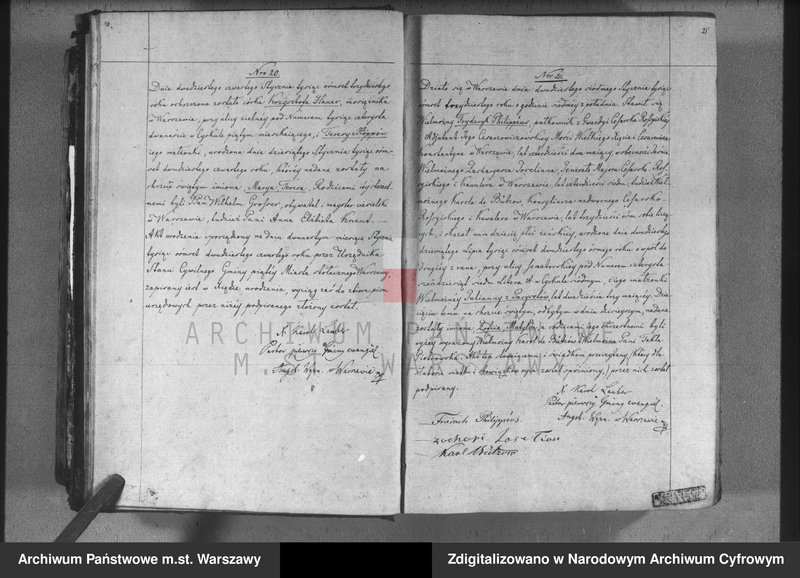 Nro 20.
Dnia dwudziestego czwartego Stycznia tysiąc ośmset trzydziestego
roku ochrzczona została córka Krzysztofa Hauer,
w Warszawie, przy ulicy zielnej pod Numerem tysiąc czterysta
dwanaście w Cyrkule piątym mieszkającego, i Teresy
jego małżonki, urodzona dnia dziesiątego Stycznia tysiąc ośm-
set dwudziestego czwartego roku, któréy nadane zostały na
chrzcie świętym imiona, Marya Teresa. Rodzicami iéy chrzest-
nemi byli Pan Wilhelm obywatel i mayster ciesielski
w Warszawie, tudzież Pani Anna Elżbieta Knaut.
Akt urodzenia sporządzony na dniu dwunastym miesiąca Stycznia
tysiąc ośmset dwudziestego czwartego roku przez Urzędnika
Stanu Cywilnego Gminy piątéy Miasta stołecznego Warszawy,
zapisany iest w Księdze urodzenia, wyciąg zaś do zbioru pism
urzędowych przez niżéy podpisanego złożony został.
X. Karol Lauber
Pastor pierwszy Gminy ewangiel.
Augsb. Wyzn. w Warszawie
21
Nro 21.
Działo się w Warszawie dnia dwudziestego siódmego Stycznia tysiąc
ośmset trzydziestego roku o godzinie siódmey z południa. Stawił się
Wielmożny Fryderyk Philippeus, pułkownik z Gwardyi Cesarsko-Rossyiskiéy
Adjutant Jego Cesarzewiczowskiey Mości Wielkiego Xięcia Cesarzewicza
Konstantego w Warszawie, lat czterdzieści dwa maiący, w obecności
Wielmożnego Zacharyasza Generała Majora Cesarsko Ros-
syiskiego i Kawalera w Warszawie, lat czterdzieści siedm, tudzież Wiel-
możnego Karola de Bütkow, Konsyliarza nadwornego Cesarsko-
Rossyiskiego i Kawalera w Warszawie, lat trzydzieści ośm roku liczą-
cych, i okazał nam dziecię płci żeńskiéy, urodzone dnia dwudziestego
dziewiątego Lipca tysiąc ośmset dwudziestego ósmego roku o wpół do
drugiéy z rana, przy ulicy Senatorskiéy pod Numerem czterysta
sześćdziesiąt siedm Litera A w Cyrkule siódmym, z iego małżonki
Wielmożnéy Julianny z lat dwadzieścia trzy maiącéy. Dzie-
cięciu temu na chrzcie świętym, odbytym w dniu dzisieyszym, nadane
zostały imiona, Zofia, Matylda, a rodzicami iego chrzestnemi byli
wyżéy wyrażony Wielmożny Karol de Bütkow i Wielmożna Pani Tekla
Akt ten stawaiącemu i świadkom przeczytany, który dla
został spóźniony, przez nich został
podpisany.
X. Karol Lauber
Pastor pierwszy Gminy ewangiel.
Augsb. Wyzn. w Warszawie
Friedrich Philippéus.
Karl Bütkow
ARCHIWUM PAŃSTWOWE
M.ST. WARSZAWY
Archiwum Państwowe m.st. Warszawy
Zdigitalizowano w Narodowym Archiwum Cyfrowym